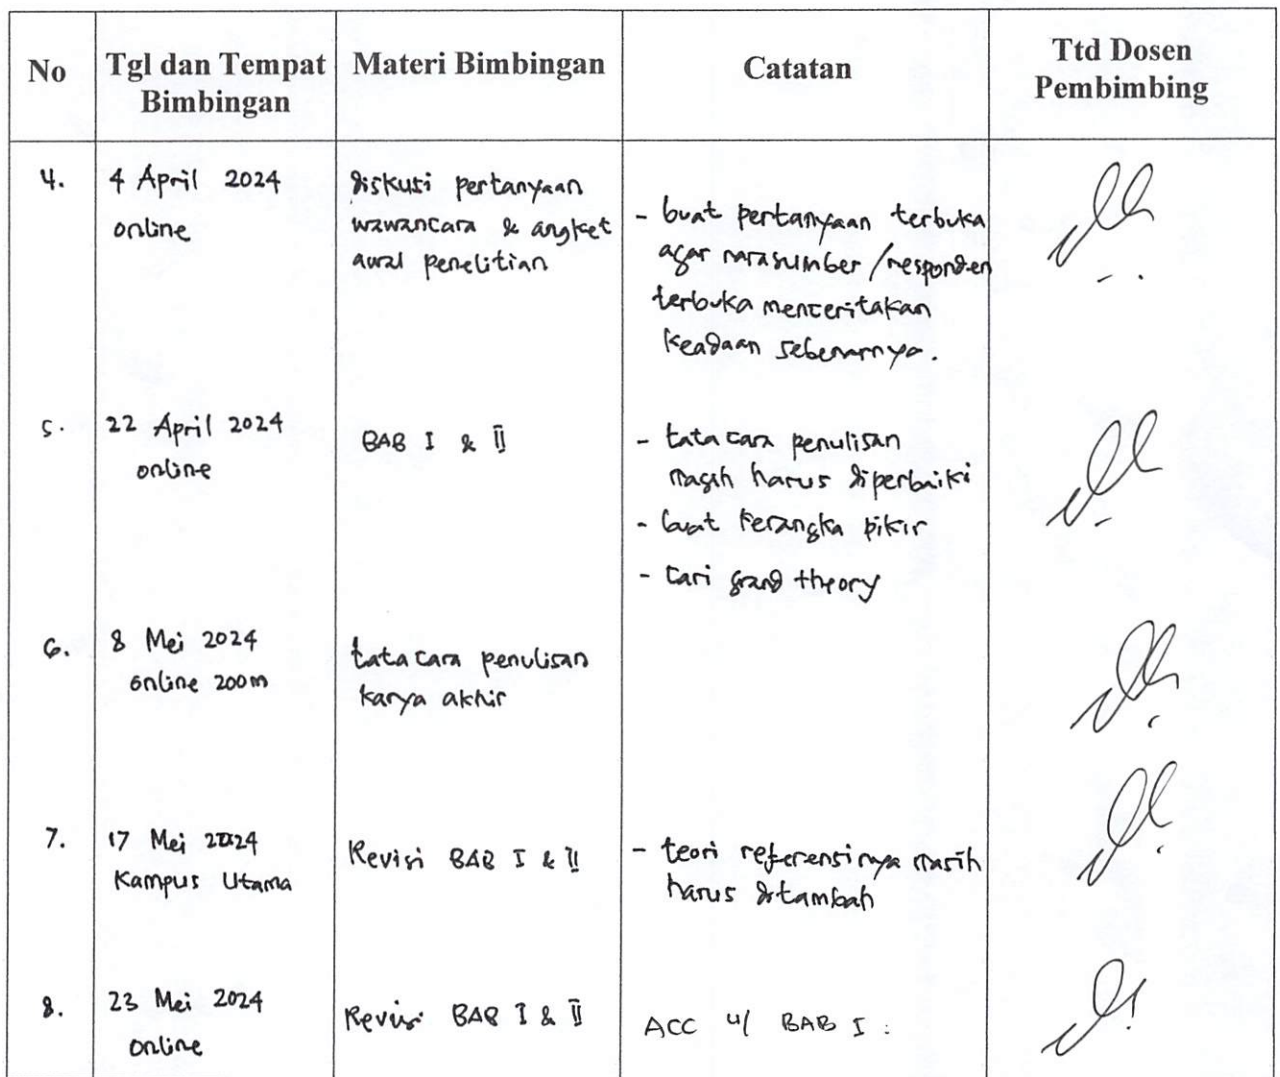 No
Tgl dan Tempat
Bimbingan
Materi Bimbingan
Catatan
Ttd Dosen
Pembimbing
4.
4 April 2024
online
diskusi pertanyaan
wawancara & angket
awal penelitian
- buat pertanyaan terbuka
agar narasumber/responden
terbuka menceritakan
keadaan sebenarnya.
5.
22 April 2024
online
BAB I & II
- tata cara penulisan
masih harus diperbaiki
- buat kerangka pikir
- cari grand theory
6.
8 Mei 2024
online zoom
tata cara penulisan
karya akhir
7.
17 Mei 2024
Kampus Utama
Revisi BAB I & II
- teori referensinya masih
harus ditambah
8.
23 Mei 2024
online
Revisi BAB I & II
ACC u/ BAB I :